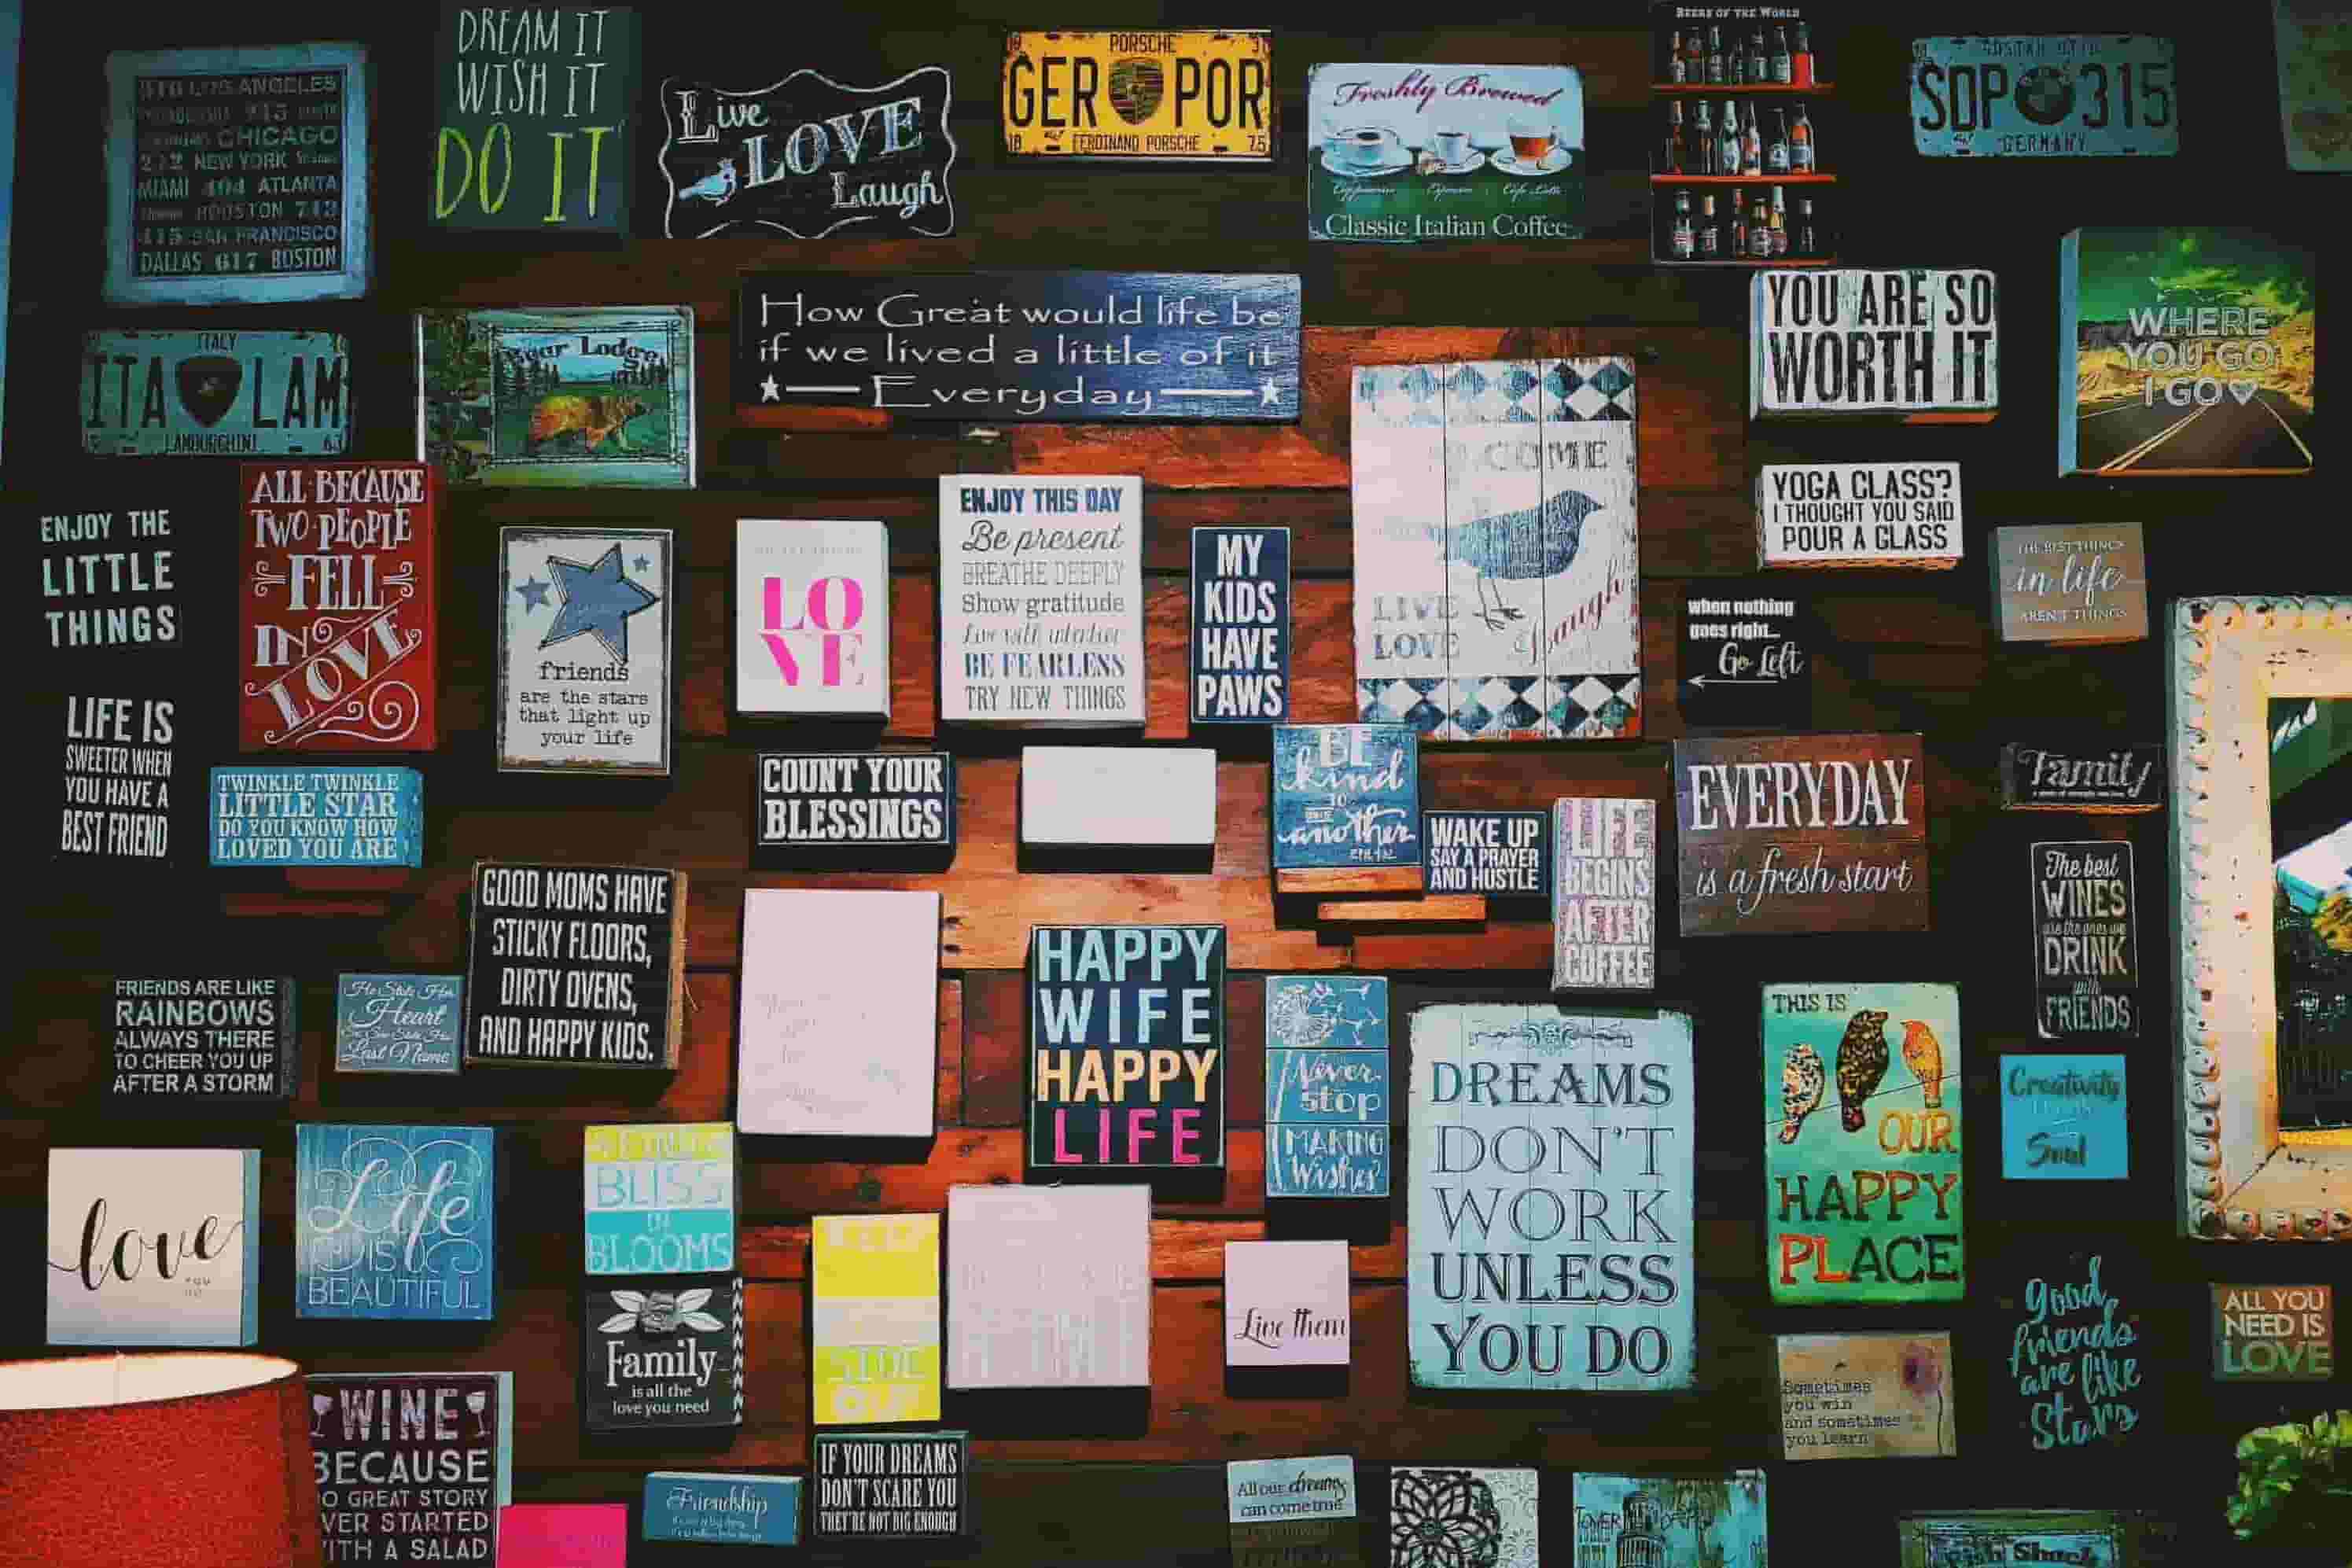 LOS ANGELES
713
CHICAGO
212 NEW YORK
MIAMI 404 ATLANTA
HOUSTON 713
415 SAN FRANCISCO
DALLAS 617 BOSTON
DREAM IT
WISH IT
DO IT
Live
LOVE
Laugh
PORSCHE
GER POR
18 FERDINAND PORSCHE 75
Freshly Brewed
Cappuccino Espresso Cafe Latte
Classic Italian Coffee
BEERS OF THE WORLD
SDP 315
GERMANY
ITALY
ITA LAM
LAMBORGHINI 63
Bear Lodge
How Great would life be
if we lived a little of it
Everyday
YOU ARE SO
WORTH IT
WHERE
YOU GO
I GO
ENJOY THE
LITTLE
THINGS
ALL BECAUSE
TWO PEOPLE
FELL
IN
LOVE
friends
are the stars
that light up
your life
LO
VE
ENJOY THIS DAY
Be present
BREATHE DEEPLY
Show gratitude
Live with intention
BE FEARLESS
TRY NEW THINGS
MY
KIDS
HAVE
PAWS
COME
LIVE
LOVE
Laugh
YOGA CLASS?
I THOUGHT YOU SAID
POUR A GLASS
when nothing
goes right...
Go Left
THE BEST THINGS
in life
AREN'T THINGS
LIFE IS
SWEETER WHEN
YOU HAVE A
BEST FRIEND
TWINKLE TWINKLE
LITTLE STAR
DO YOU KNOW HOW
LOVED YOU ARE
COUNT YOUR
BLESSINGS
BE
kind
to
one
another
WAKE UP
SAY A PRAYER
AND HUSTLE
LIFE
BEGINS
AFTER
COFFEE
EVERYDAY
is a fresh start
Family
The best
WINES
are the ones we
DRINK
with
FRIENDS
GOOD MOMS HAVE
STICKY FLOORS,
DIRTY OVENS,
AND HAPPY KIDS.
FRIENDS ARE LIKE
RAINBOWS
ALWAYS THERE
TO CHEER YOU UP
AFTER A STORM
He Stole Her
Heart
So She Stole His
Last Name
HAPPY
WIFE
HAPPY
LIFE
Never
stop
MAKING
Wishes
DREAMS
DON'T
WORK
UNLESS
YOU DO
THIS IS
OUR
HAPPY
PLACE
Creativity
Soul
love
YOU
Life
IS
BEAUTIFUL
BLISS
IN
BLOOMS
Family
is all the
love you need
SIDE
OUT
Live them
Sometimes
you win
and sometimes
you learn
Good
friends
are like
Stars
ALL YOU
NEED IS
LOVE
WINE
BECAUSE
O GREAT STORY
VER STARTED
ITH A SALAD
Friendship
IF YOUR DREAMS
DON'T SCARE YOU
THEY'RE NOT BIG ENOUGH
All our dreams
can come true
TOWER OF
Shack